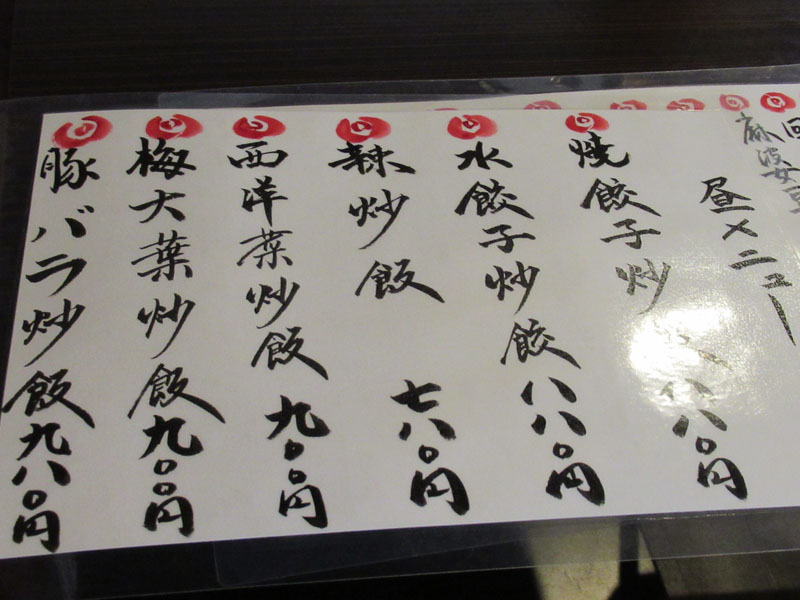 麻婆豆
昼メニュー
焼餃子炒 八八〇円
水餃子炒餃 八八〇円
辣炒飯 七八〇円
西洋菜炒飯 九〇〇円
梅大葉炒飯九〇〇円
豚バラ炒飯九八〇円